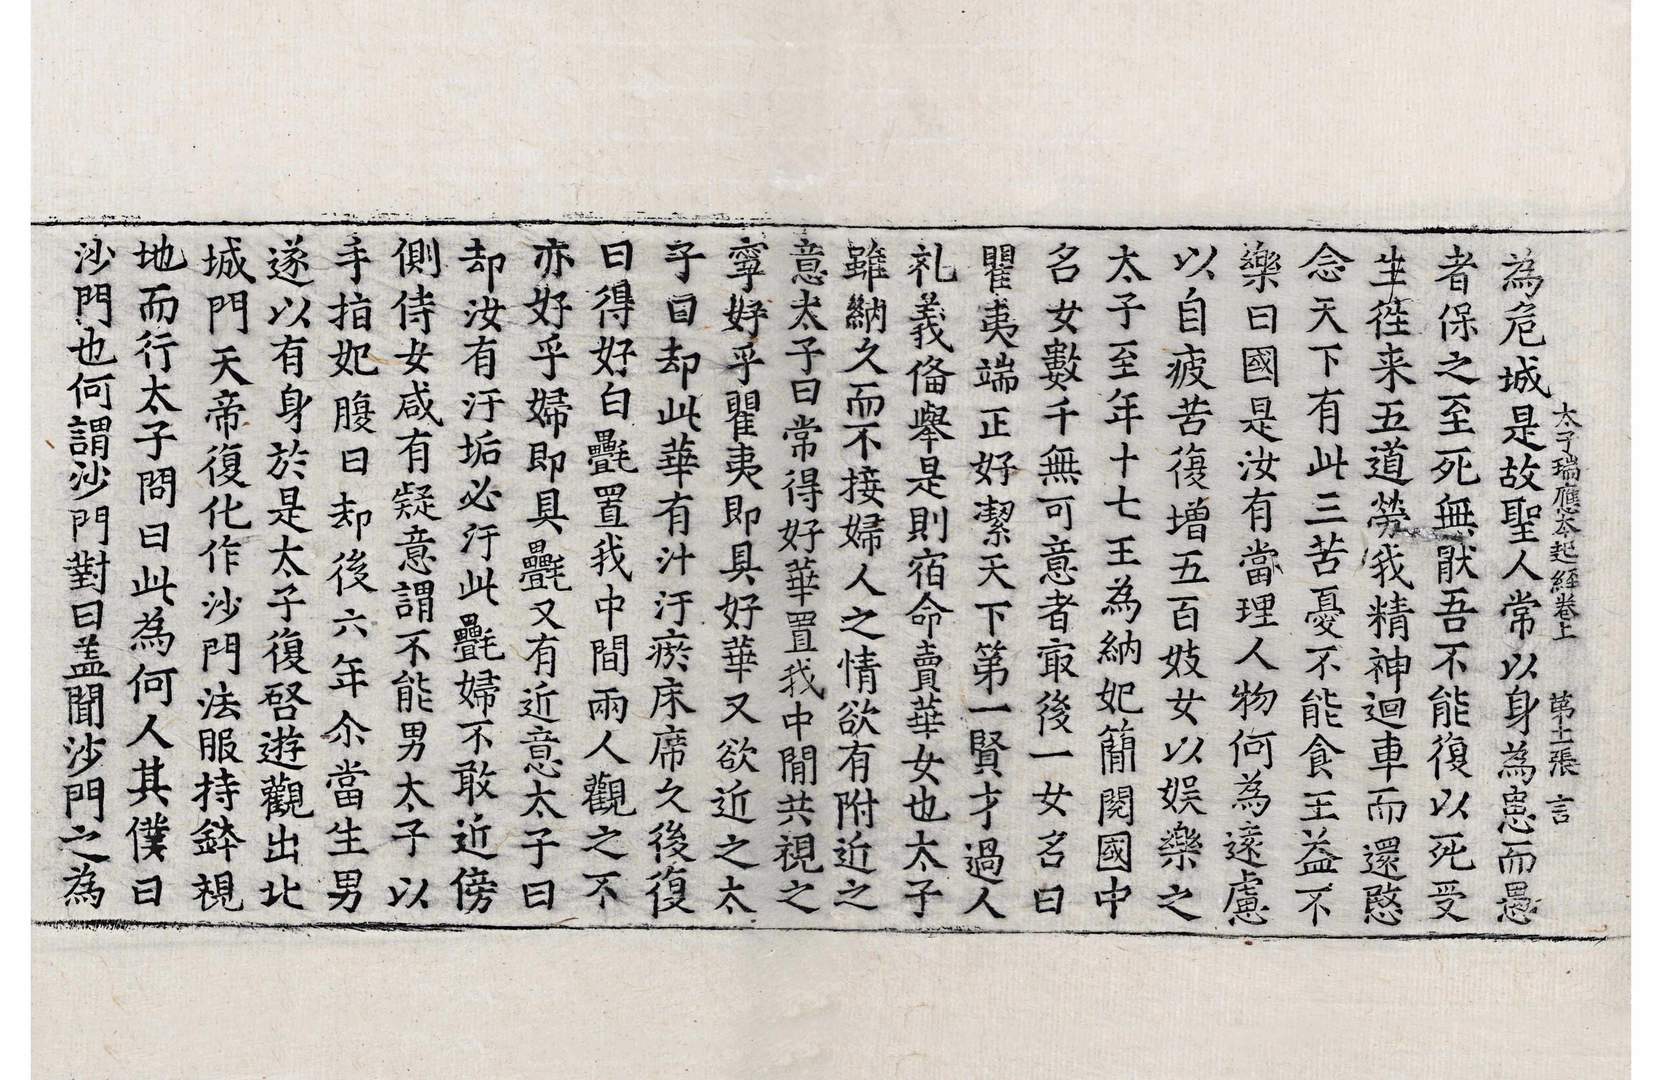 太子瑞應本起經卷上　第十二張　言
為危城是故聖人常以身為患而愚
者保之至死無猒吾不能復以死受
生徃来五道勞我精神迴車而還愍
念天下有此三苦憂不能食王益不
樂曰國是汝有當理人物何為遠慮
以自疲苦復增五百妓女以娱樂之
太子至年十七王為納妃簡閱國中
名女數千無可意者冣後一女名曰
瞿夷端正好潔天下第一賢才過人
礼義俻舉是則宿命賣華女也太子
雖納久而不接婦人之情欲有附近之
意太子曰常得好華置我中間共視之
寧好乎瞿夷即具好華又欲近之太
子曰却此華有汁汙瘀床席久後復
曰得好白㲲置我中間兩人觀之不
亦好乎婦即具㲲又有近意太子曰
却汝有汙垢必汙此㲲婦不敢近傍
側侍女咸有疑意謂不能男太子以
手指妃腹曰却後六年尒當生男
遂以有身於是太子復啓遊觀出北
城門天帝復化作沙門法服持鉢視
地而行太子問曰此為何人其僕曰
沙門也何謂沙門對曰盖聞沙門之為